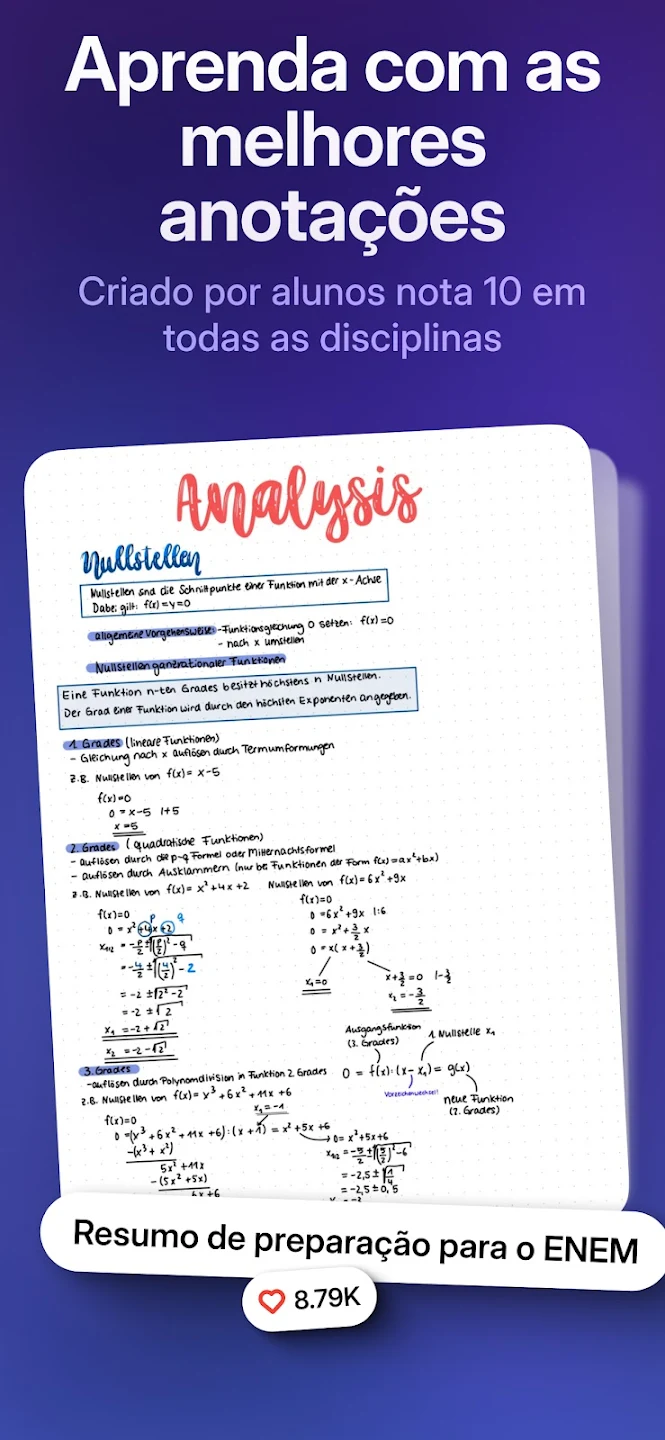 Aprenda com as
melhores
anotações
Criado por alunos nota 10 em
todas as disciplinas
Analysis
Nullstellen
Nullstellen sind die Schnittpunkte einer Funktion mit der x-Achse
Dabei gilt: f(x)=y=0
allgemeine Vorgehensweise: -Funktionsgleichung 0 setzen: f(x)=0
- nach x umstellen
Nullstellen ganzrationaler Funktionen
Eine Funktion n-ten Grades besitzt höchstens n Nullstellen.
Der Grad einer Funktion wird durch den höchsten Exponenten angegeben.
1. Grades (lineare Funktionen)
- Gleichung nach x auflösen durch Termumformungen
z.B. Nullstellen von f(x)= x-5
f(x)=0
0 = x-5 |+5
x=5
2. Grades (quadratische Funktionen)
- auflösen durch die p-q Formel oder Mitternachtsformel
- auflösen durch Ausklammern (nur bei Funktionen der Form f(x)=ax²+bx)
z.B. Nullstellen von f(x)= x²+4x+2 Nullstellen von f(x)=6x²+9x
f(x)=0
p q
0 = x²+4x+2
x₁/₂ = -p/2 ±√((p/2)²-q)
= -4/2 ±√((4/2)²-2)
= -2 ±√(2²-2)
= -2 ±√2
x₁ = -2+√2
x₂ = -2-√2
f(x)=0
0 =6x²+9x |:6
0 = x²+3/2 x
0 = x(x+3/2)
x₁=0
x+3/2=0 |-3/2
x₂=-3/2
3. Grades
-auflösen durch Polynomdivision in Funktion 2. Grades
z.B. Nullstellen von f(x)= x³+6x²+11x+6
x₁=-1
Ausgangsfunktion
(3. Grades)
1. Nullstelle x₁
0 = f(x):(x-x₁)= g(x)
Vorzeichenwechsel!
neue Funktion
(2. Grades)
f(x)=0
0 =(x³+6x²+11x+6):(x+1)= x²+5x+6
-(x³+x²)
5x²+11x
-(5x²+5x)
6x+6
0= x²+5x+6
x₁/₂ = -5/2 ±√((5/2)²-6)
= -2,5±√(1/4)
= -2,5±0,5
Resumo de preparação para o ENEM
8.79K